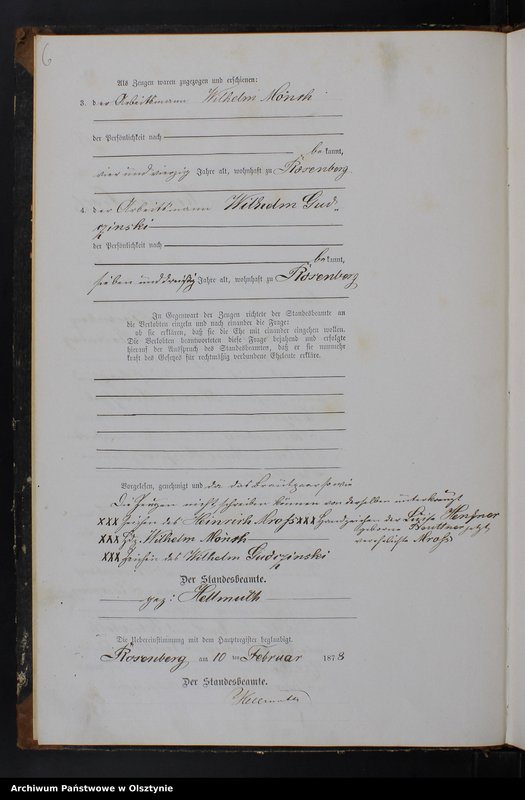 6
Als Zeugen waren zugezogen und erschienen:
3. der Arbeitsmann Wilhelm Mönch
der Persönlichkeit nach
bekannt,
vier und vierzig Jahre alt, wohnhaft zu Rosenberg
4. der Arbeitsmann Wilhelm Gud-
czinski
der Persönlichkeit nach
bekannt,
sieben und dreißig Jahre alt, wohnhaft zu Rosenberg
In Gegenwart der Zeugen richtete der Standesbeamte an
die Verlobten einzeln und nach einander die Frage:
ob sie erklären, daß sie die Ehe mit einander eingehen wollen.
Die Verlobten beantworteten diese Frage bejahend und erfolgte
hierauf der Ausspruch des Standesbeamten, daß er sie nunmehr
kraft des Gesetzes für rechtmäßig verbundene Eheleute erkläre.
Vorgelesen, genehmigt und da das Brautpaar sowie
die Zeugen nicht schreiben können von denselben unterkreuzt
XXX Zeichen des Heinrich Mross XXX Handzeichen der
geborene verehelichte Mross
XXX Wilhelm Mönch
XXX Zeichen des Wilhelm Gudczinski
Der Standesbeamte.
gez: Hellmuth
Die Uebereinstimmung mit dem Hauptregister beglaubigt.
Rosenberg am 10 ten Februar 1878
Der Standesbeamte.
Hellmuth
Archiwum Państwowe w Olsztynie